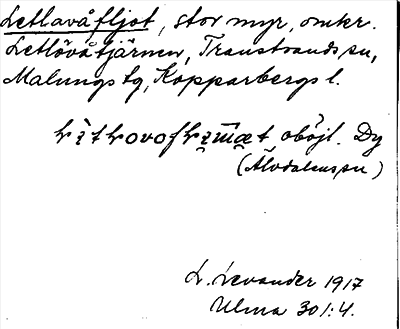 Letlavåfljot, stor myr, omkr.
Letlövåtjärnen, Transtrands sn,
Malungs tg, Kopparbergs l.
oböjl. Dy
(Älvdalens sn)
L. Levander 1917
Ulma 301:4.